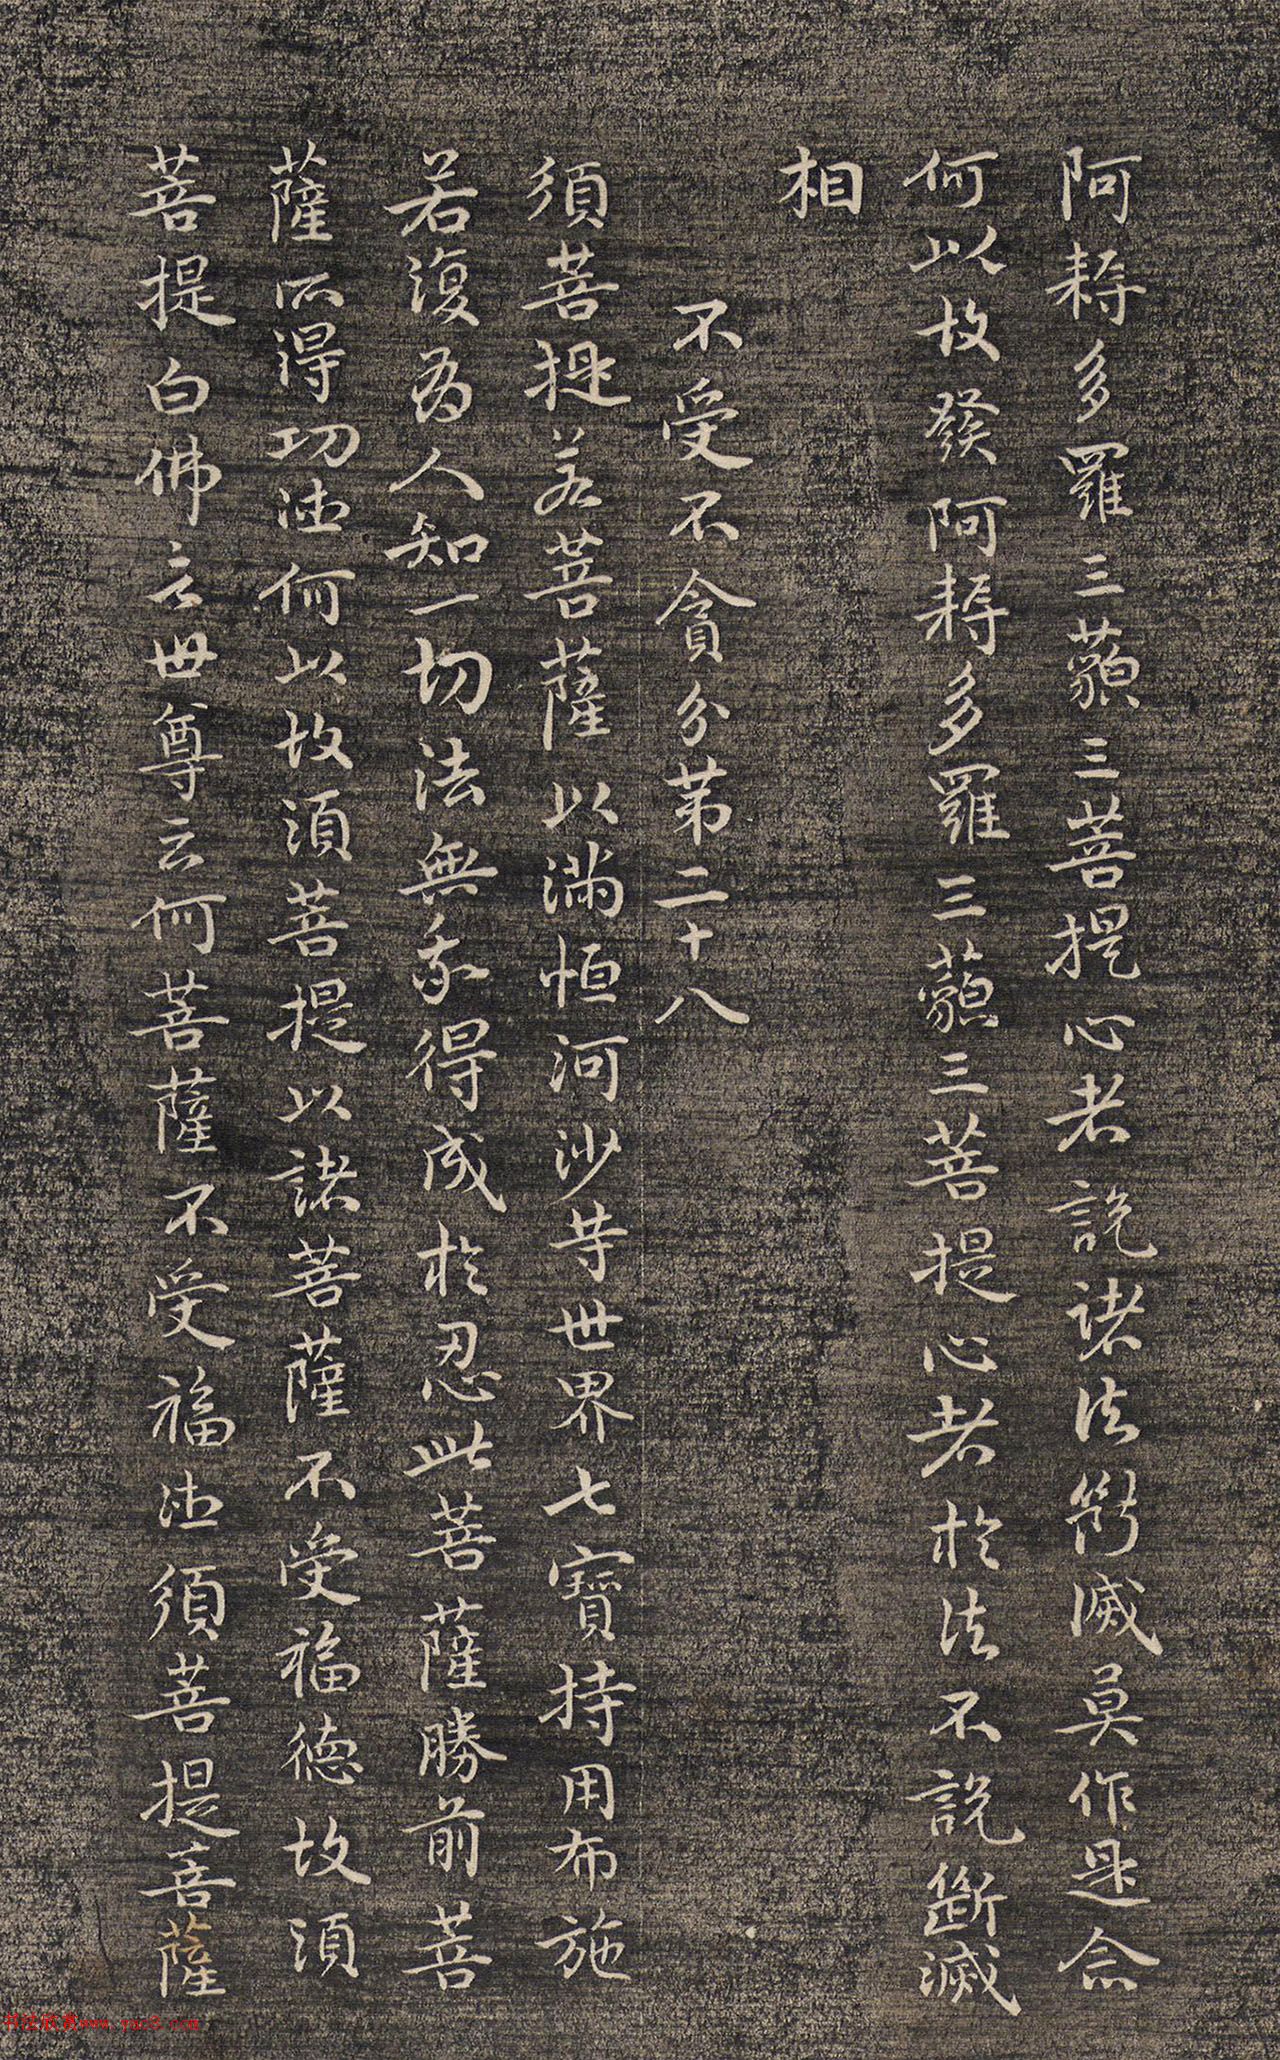 阿耨多羅三藐三菩提心者說諸法斷滅莫作是念
何以故發阿耨多羅三藐三菩提心者於法不說斷滅
相
不受不貪分第二十八
須菩提若菩薩以滿恒河沙等世界七寶持用布施
若復為人知一切法無我得成於忍此菩薩勝前菩
薩所得功德何以故須菩提以諸菩薩不受福德故須
菩提白佛言世尊云何菩薩不受福德須菩提菩薩